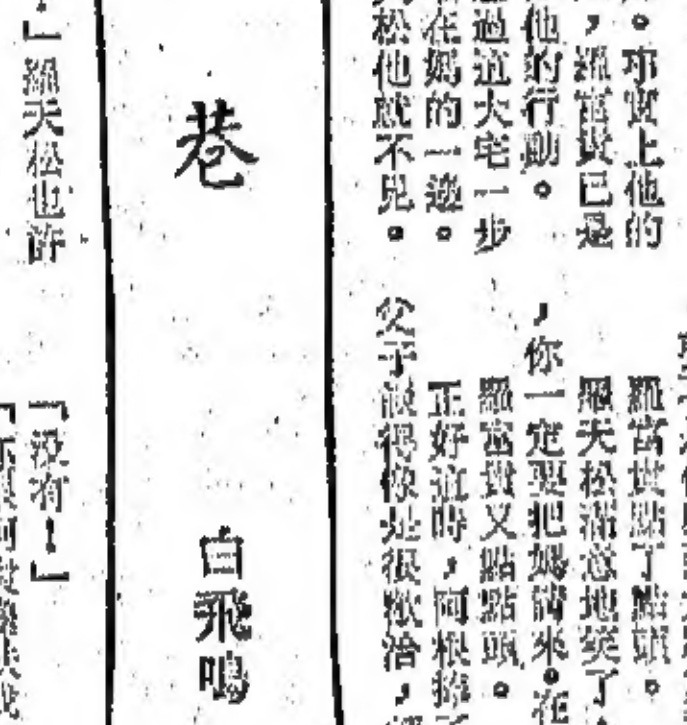 事實上他的
，羅富貴已是
他的行動。
過這大宅一步
在媽的一邊。
松他就不見。
羅富貴點了點頭。
羅天松滿意地笑了
，你一定要把媽請來。在
羅富貴又點點頭。
正好這時，阿根
父子談得像是很歡洽，
巷
白飛鳴
！」羅天松也許
「沒有！」